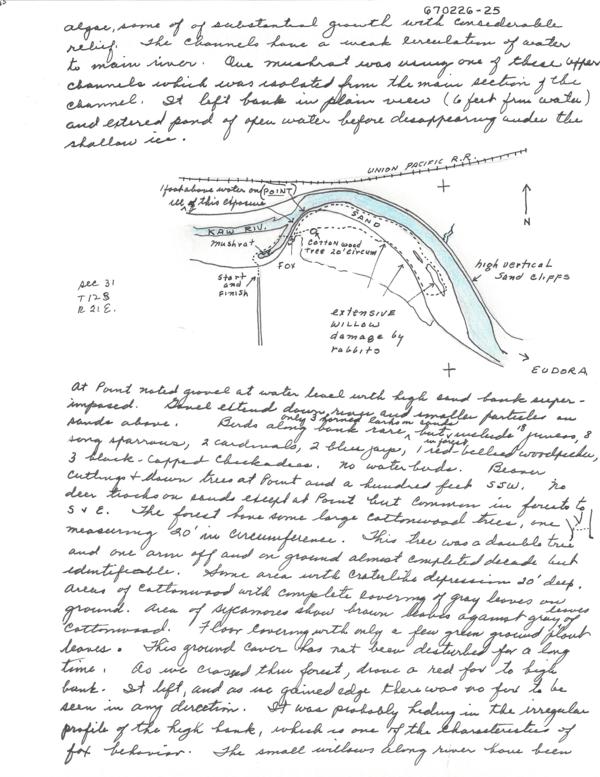 670226-25
algae, some of of substantial growth with considerable
relief. The channels have a weak circulation of water
to main river. One muskrat was using one of these upper
channels which was isolated from the main section of the
channel. It left bank in plain view (6 feet from water)
and entered pond of open water before disappearing under the
shallow ice.
UNION PACIFIC R.R.
above water on
ice of this exposure
POINT
N
KAW RIV.
SAND
muskrat
COTTONWOOD
TREE 20' CIRCUM
FOX
high vertical
Sand Cliffs
Start
and
Finish
sec 31
T12S
R21E.
extensive
WILLOW
damage by
rabbits
EUDORA
At Point noted gravel at water level with high sand bank super-
imposed. Gravel extend down river and smaller particles on
sands above. Birds along bank rare, only 3 horned larks on sands but include 18 juncos, 8
song sparrows, 2 cardinals, 2 blue jays, 1 red-bellied woodpecker, in forest
3 black-capped Chickadees. No water birds. Beaver
cuttings + down trees at Point and a hundred feet SSW. No
deer tracks on sands except at Point but common in forests to
S + E. The forest have some large cottonwood trees, one
measuring 20' in circumference. This tree was a double tree
and one arm off and on ground almost completed decade but
identifiable. Some area with craterlike depression 20' deep.
Areas of cottonwood with complete covering of gray leaves on
ground. Area of sycamores show brown leaves against gray leaves of
cottonwood. Floor covering with only a few green ground plant
leaves. This ground cover has not been disturbed for a long
time. As we crossed thru forest, drove a red fox to high
bank. It left, and as we gained edge there was no fox to be
seen in any direction. It was probably hiding in the irregular
profile of the high bank, which is one of the characteristics of
fox behavior. The small willows along river have been